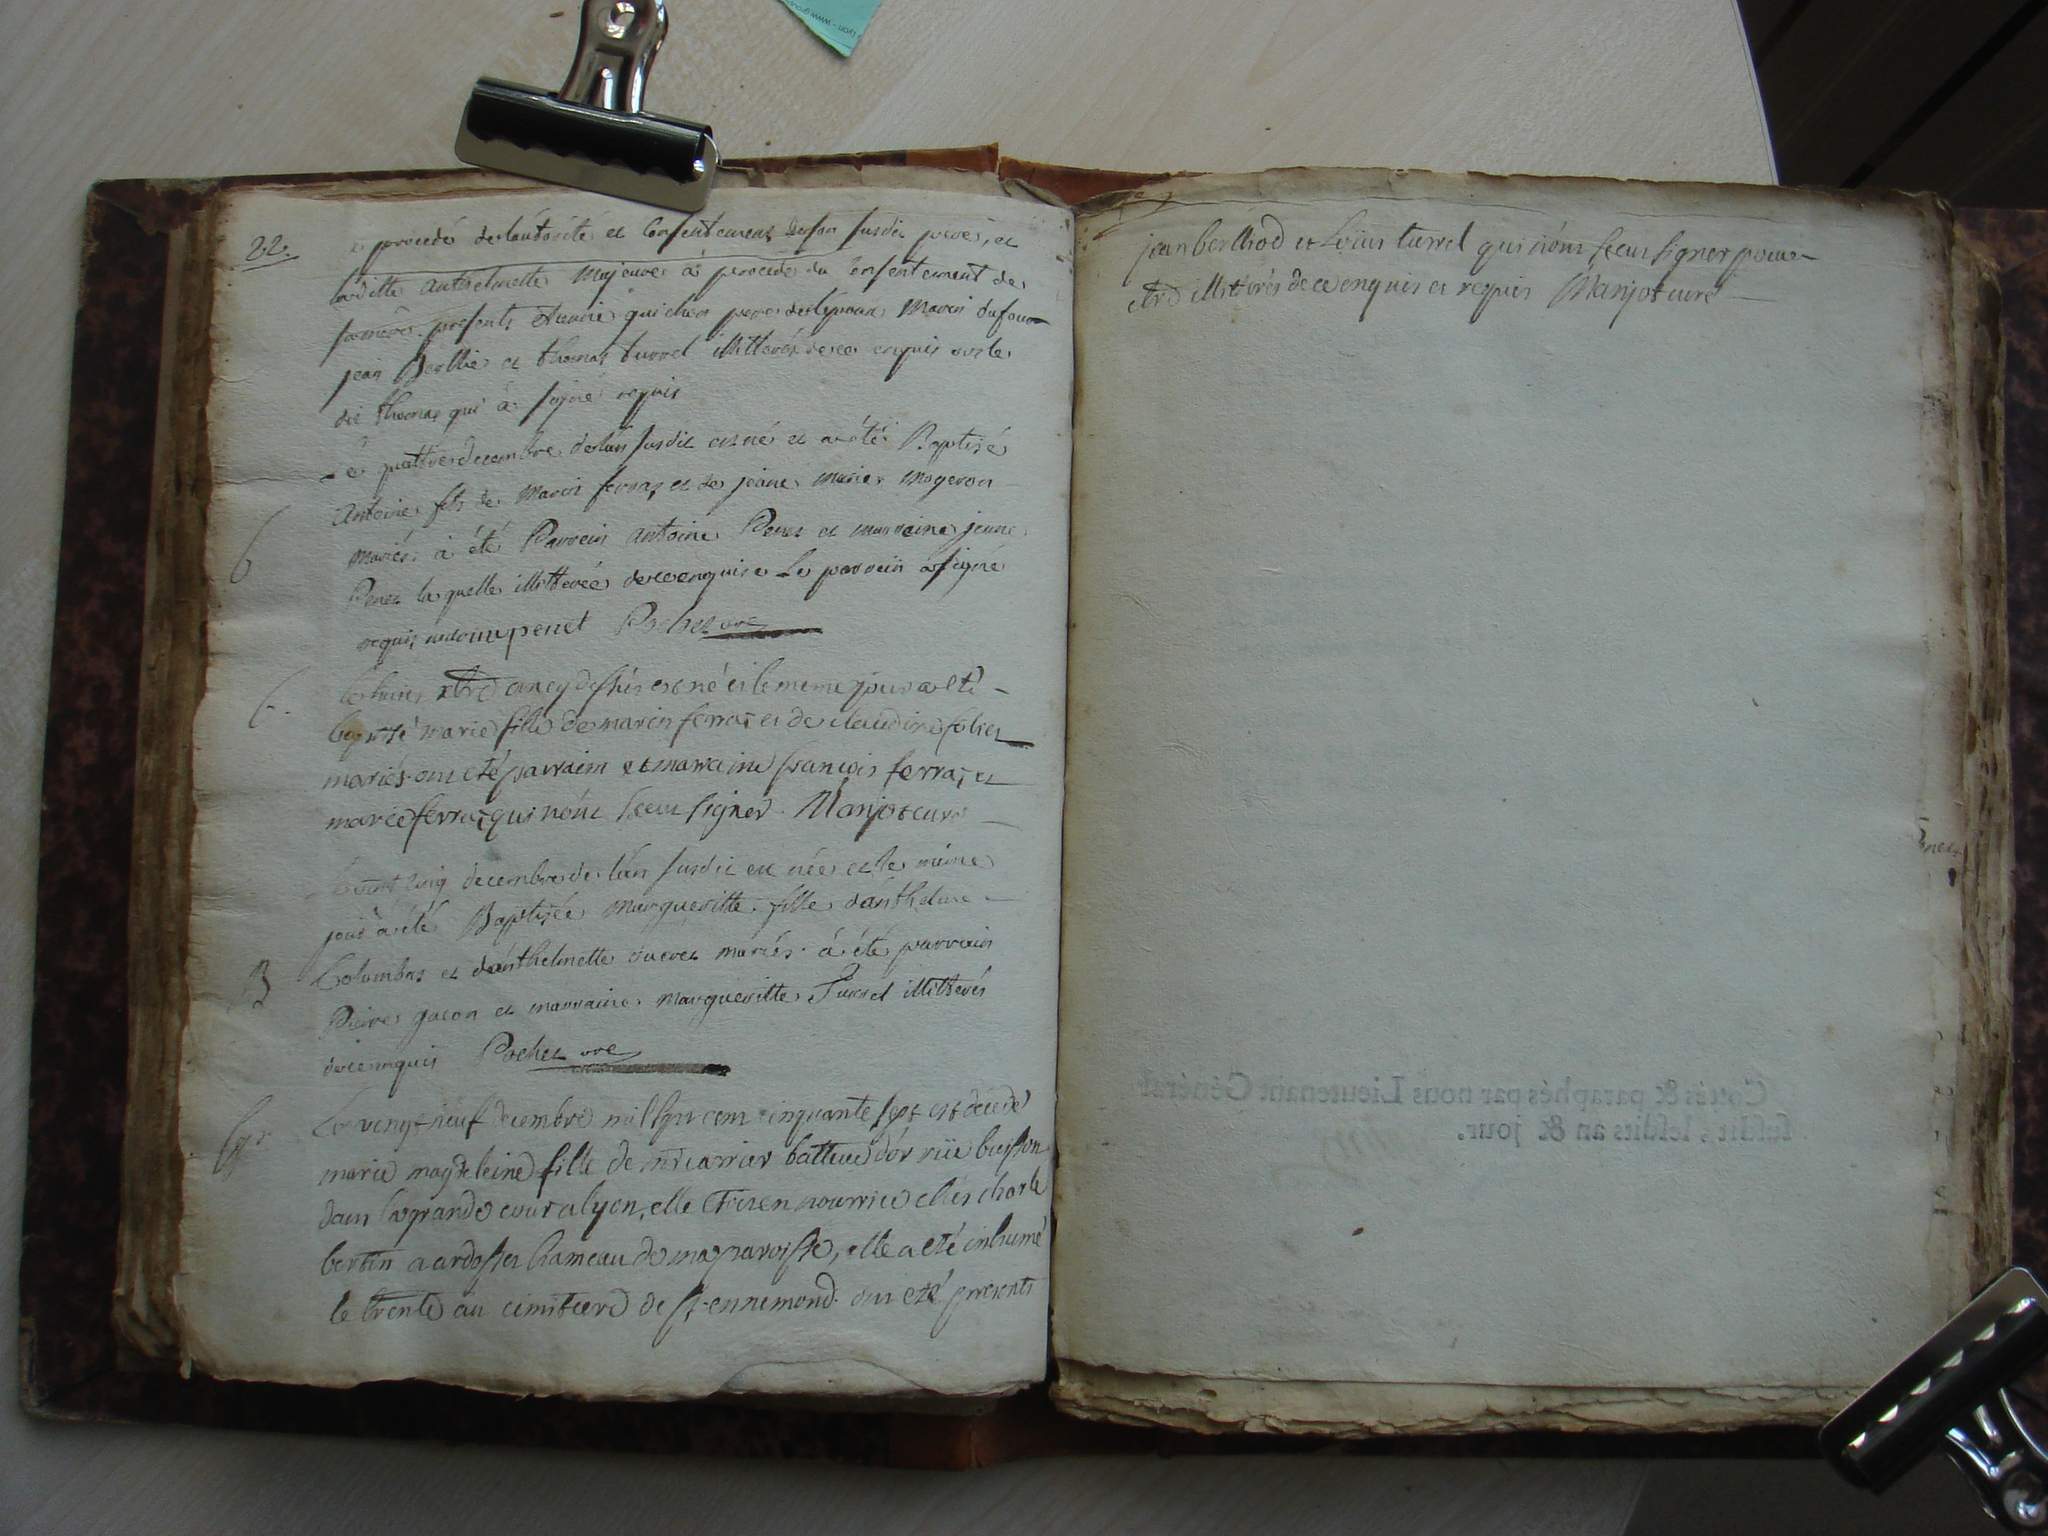 22.
procedé de l'autorité et consentement de son susdit pere, et
laditte anthelmette majeure à procedé du consentement de
sa mere. presents etienne guichon pere de l'epoux Marin dufour
jean Berllie et thomas turrel illitterés de ce enquis sur le
dit thomas qui à signé requis
Le quattre decembre de l'an susdit est né et a été Baptisé
Antoine fils de Marin ferraz et de jeane marie Mogeron
mariés. à été Parrein antoine Penet et marreine jeane
Penet la quelle illitterée de ce enquise Le parrein a signé
requis antoine penet Pochet vre
6
mariés ont eté parrain et marraine françois ferraz et
marie ferraz qui n'ont sceu signer. Manjot curé
le vint cinq decembre de l'an susdit est née et le même
jour a été Baptisée margueritte fille d'anthelme
Colombat et d'anthelmette mariés. à été parrain
Pierre gacon et marraine margueritte Turrel illitterés
de ce enquis Pochet vre
B
baptisé marie fille de marin ferraz et de claudine
Le vingt neuf decembre mil sept cent cinquante sept est decedé
marie magdeleine fille de mr carrier batteur d'or rüe buisson
dans la grande cour a lyon, elle etoit en nourrice chés charle
bertin a ardosset hameau de ma paroisse, elle a eté inhumé
le trente au cimitiere de st. ennemond. ont eté presents
jean berthod et Loüis turrel qui n'ont sceu signer pour
etre illiterés de ce enquis et requis Manjot curé
Cottés & paraphés par nous Lieutenant Général
susdit, lesdits an & jour.